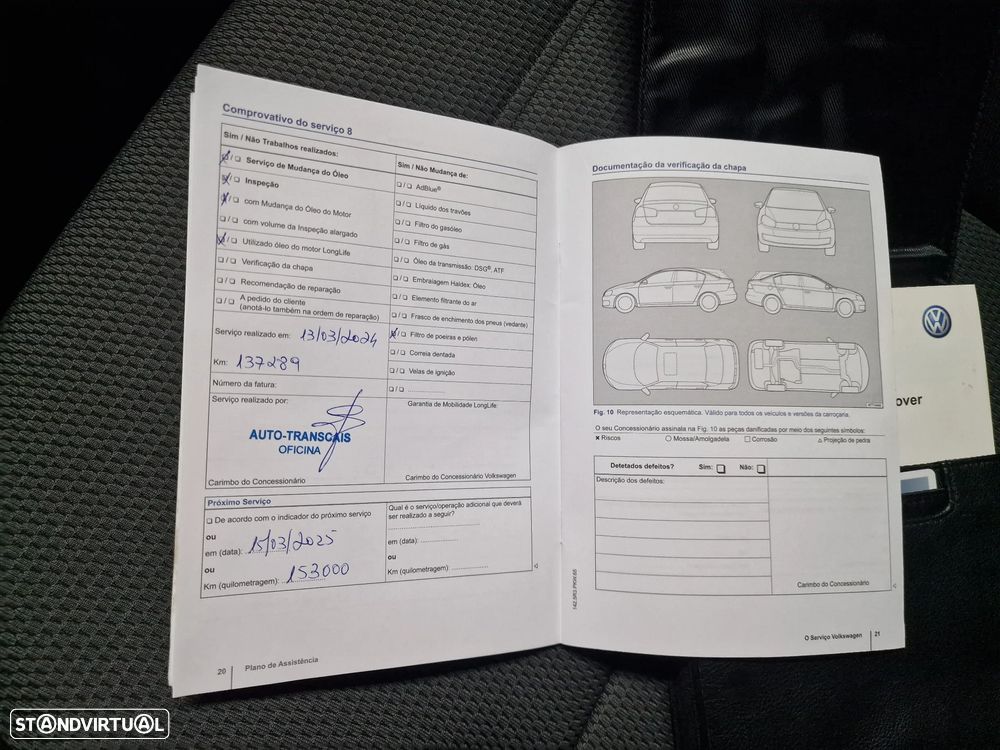 Comprovativo do serviço 8
Sim / Não Trabalhos realizados:
Serviço de Mudança do Óleo
Inspeção
com Mudança do Óleo do Motor
com volume da Inspeção alargado
Utilizado óleo do motor LongLife
Verificação da chapa
Recomendação de reparação
A pedido do cliente
(anotá-lo também na ordem de reparação)
Serviço realizado em: 13/03/2024
Km: 137289
Número da fatura:
Serviço realizado por:
AUTO-TRANSCAIS
OFICINA
Carimbo do Concessionário
Sim / Não Mudança de:
AdBlue®
Líquido dos travões
Filtro do gasóleo
Filtro de gás
Óleo da transmissão: DSG®, ATF
Embraiagem Haldex: Óleo
Elemento filtrante do ar
Frasco de enchimento dos pneus (vedante)
Filtro de poeiras e pólen
Correia dentada
Velas de ignição
Garantia de Mobilidade LongLife:
Carimbo do Concessionário Volkswagen
Próximo Serviço
De acordo com o indicador do próximo serviço
ou
em (data): 15/03/2025
ou
Km (quilometragem): 153000
Qual é o serviço/operação adicional que deverá
ser realizado a seguir?
em (data):
ou
Km (quilometragem):
20 Plano de Assistência
Documentação da verificação da chapa
Fig. 10 Representação esquemática. Válido para todos os veículos e versões da carroçaria.
O seu Concessionário assinala na Fig. 10 as peças danificadas por meio dos seguintes símbolos:
× Riscos ○ Mossa/Amolgadela □ Corrosão △ Projeção de pedra
Detetados defeitos? Sim: Não:
Descrição dos defeitos:
Carimbo do Concessionário
142.5R3.PKW.65
O Serviço Volkswagen 21
over
STANDVIRTUAL